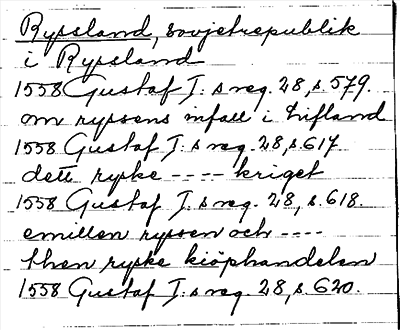 Ryssland, sovjetrepublik
i Ryssland
1558 Gustaf I:s reg. 28, s. 579.
om ryssens infall i Lifland
1558 Gustaf I:s reg. 28, s. 617.
dett ryske ---- kriget
1558 Gustaf I:s reg. 28, s. 618.
emillen ryssen och ----
then ryske kiöphandelen
1558 Gustaf I:s reg. 28, s. 620.